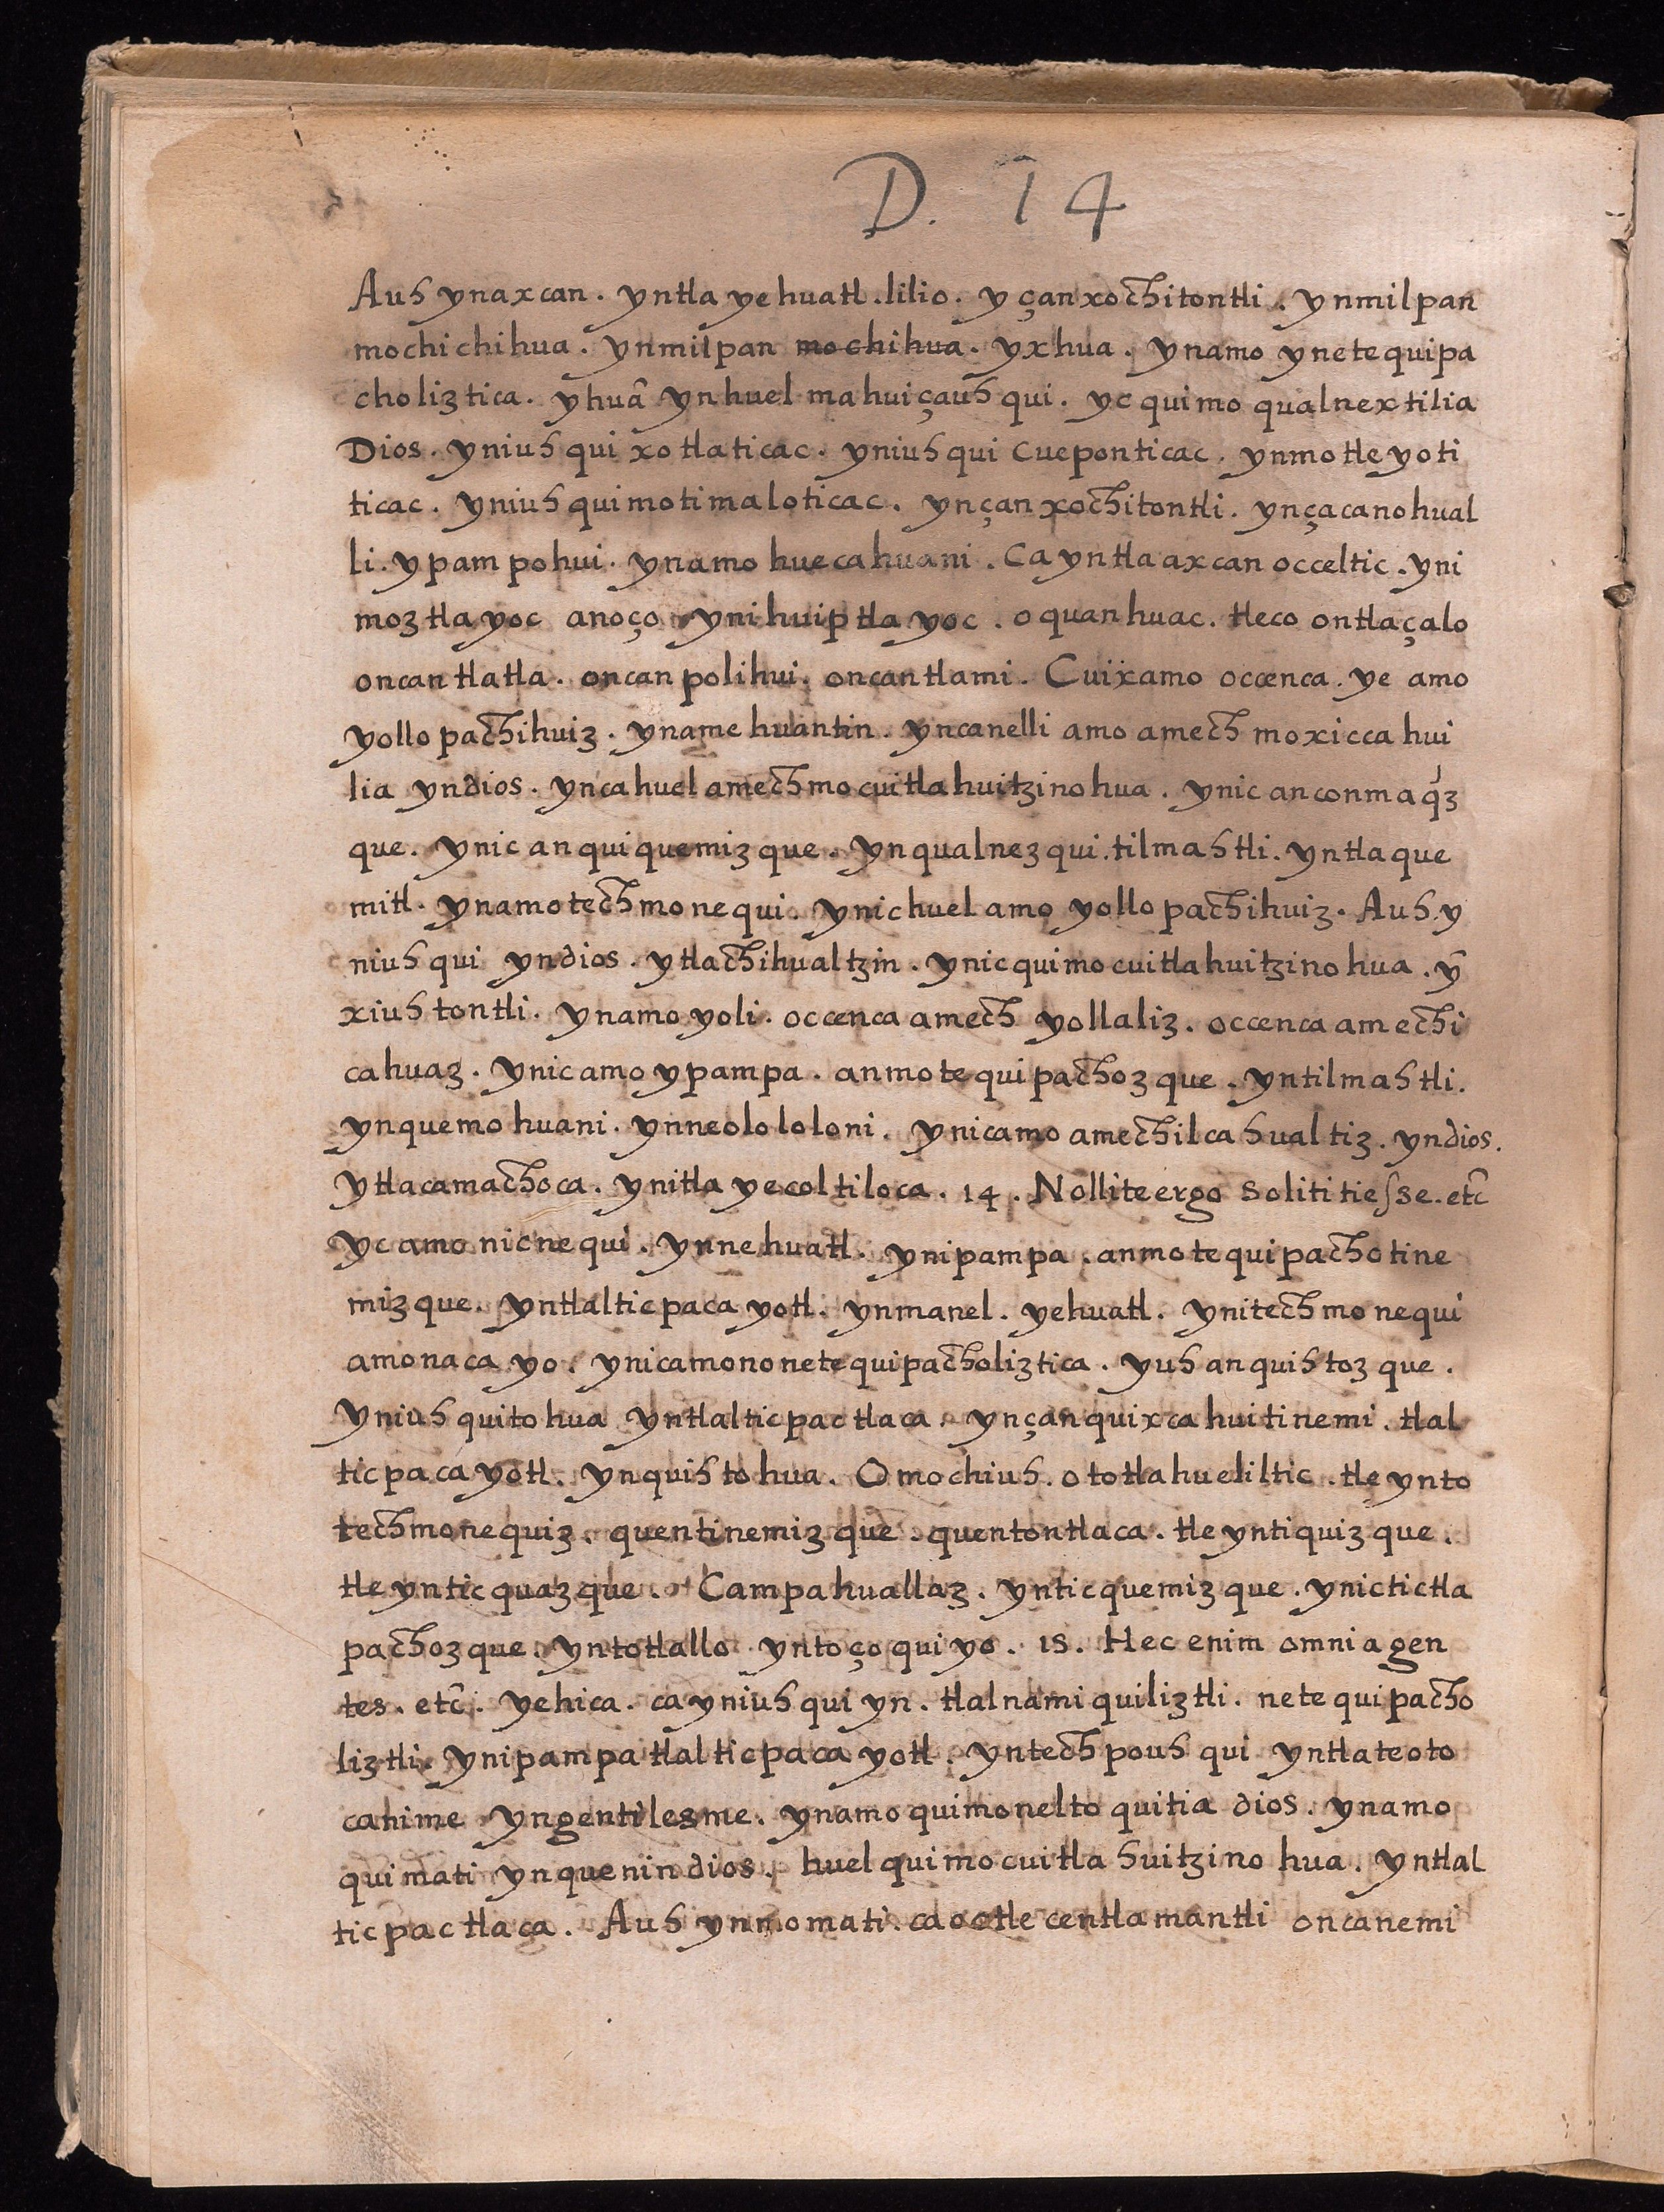 D. 14
Auh ynaxcan . yntla yehuatl . lilio . y çan xochitontli . ynmilpan
mochichihua . ynmilpan mochihua . yxhua . ynamo ynetequipa
choliztica . yhuã ynhuel mahuiçauhqui . yc quimo qualnextilia
Dios . yniuhqui xotlaticac . yniuhqui cueponticac . ynmotleyoti
ticac . yniuhquimotimaloticac . ynçanxochitontli . ynçacanohual
li . ypampohui . ynamo huecahuani . Ca yntla axcan occeltic . yni
moztlayoc anoço ynihuiptlayoc . oquanhuac . tleco ontlaçalo
oncantlatla . oncan polihui . oncantlami . Cuixamo occenca . ye amo
yollo pachihuiz . yname huantin . yncanelli amo amech moxiccahui
lia yndios . yncahuel amechmocuitlahuitzinohua . ynic anconmaq́z
que . ynic anquiquemizque . ynqualnezqui . tilmahtli . yntlaque
mitl . ynamotechmonequi . ynichuel amo yollo pachihuiz . Auh y
niuhqui yndios . ytlachihualtzin . ynicquimocuitlahuitzinohua . ỹ
xiuhtontli . ynamo yoli . occenca amech yollaliz . occenca amechi
cahuaz . ynicamo ypampa . anmotequipachozque . yntilmahtli .
ynquemohuani . ynneolololoni . ynicamo amechilcahualtiz . yndios .
ytlacamachoca . ynitlayecoltiloca . 14 . Nolliteergo solititiesse . etc̃
yc amo nicnequi . ynnehuatl . ynipampa . anmotequipachotine
mizque . yntlalticpacayotl . ynmanel . yehuatl . ynitechmonequi
amonacayo . ynicamononetequipacholiztica . yuh anquihtozque .
yniuhquitohua yntlalticpactlaca . ynçanquixcahuitinemi . tlal
ticpacayotl . ynquihtohua . Omochiuh . ototlahueliltic . tle ynto
techmonequiz . quentinemizque . quentontlaca . tle yntiquizque .
tle ynticquazque . Campahuallaz . ynticquemizque . ynictictla
pachozque . yntotlallo yntoçoquiyo . 15 . Hec enim omnia gen
tes . etc̃ . yehica . ca yniuhqui yn . tlalnamiquiliztli . netequipacho
liztli . ynipampa tlalticpacayotl . yntechpouhqui yntlateoto
canime yngentilesme . ynamo quimoneltoquitia dios . ynamo
quimati ynquenin dios . huel quimocuitlahuitzinohua . yntlal
ticpactlaca . Auh ynmomati . caoctle centlamantli oncanemi